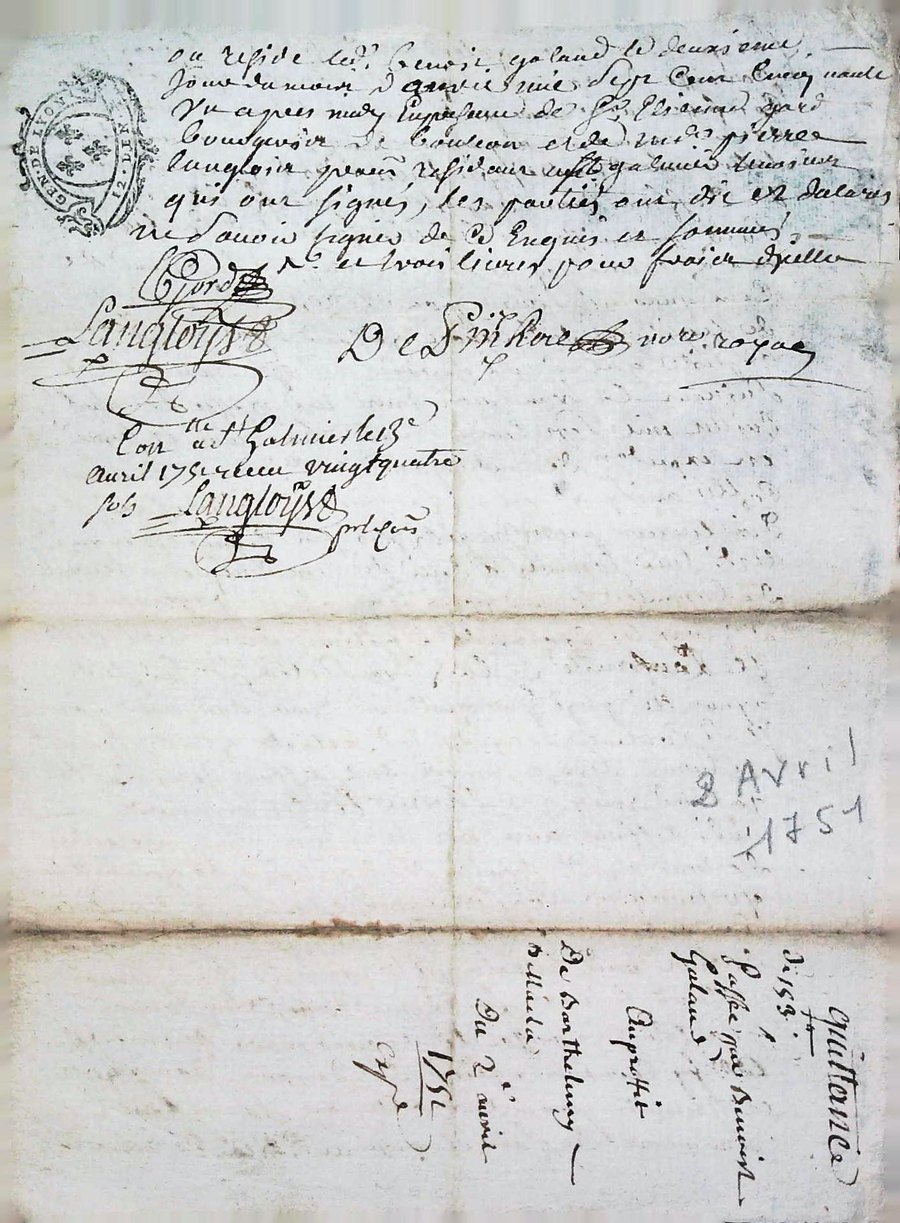 GEN. DE LION
12 DEN.
ou reside led. benoit galand le deuxieme
jour du mois d'avril mil sept cent cinquante
un apres midy En presence de Sr. Etienne gord
bourgeois de et de md. pierre
langlois residant a st galmier temoins
qui ont signés, les parties ont dit et declarés
ne Savoir signer de ce Enquis et sommés
et trois livres pour fraix d'icelle
Gord
Langloÿs
De notre royal
Con. a St. Galmier le 13e
avril 1751 receu vingt quatre
sols Langloÿs
2 Avril
1751
quittance
de 153
Passée par Benoist
Galand
Au proffit
De Barthelemy
Du 2e avril
1751
Expd.